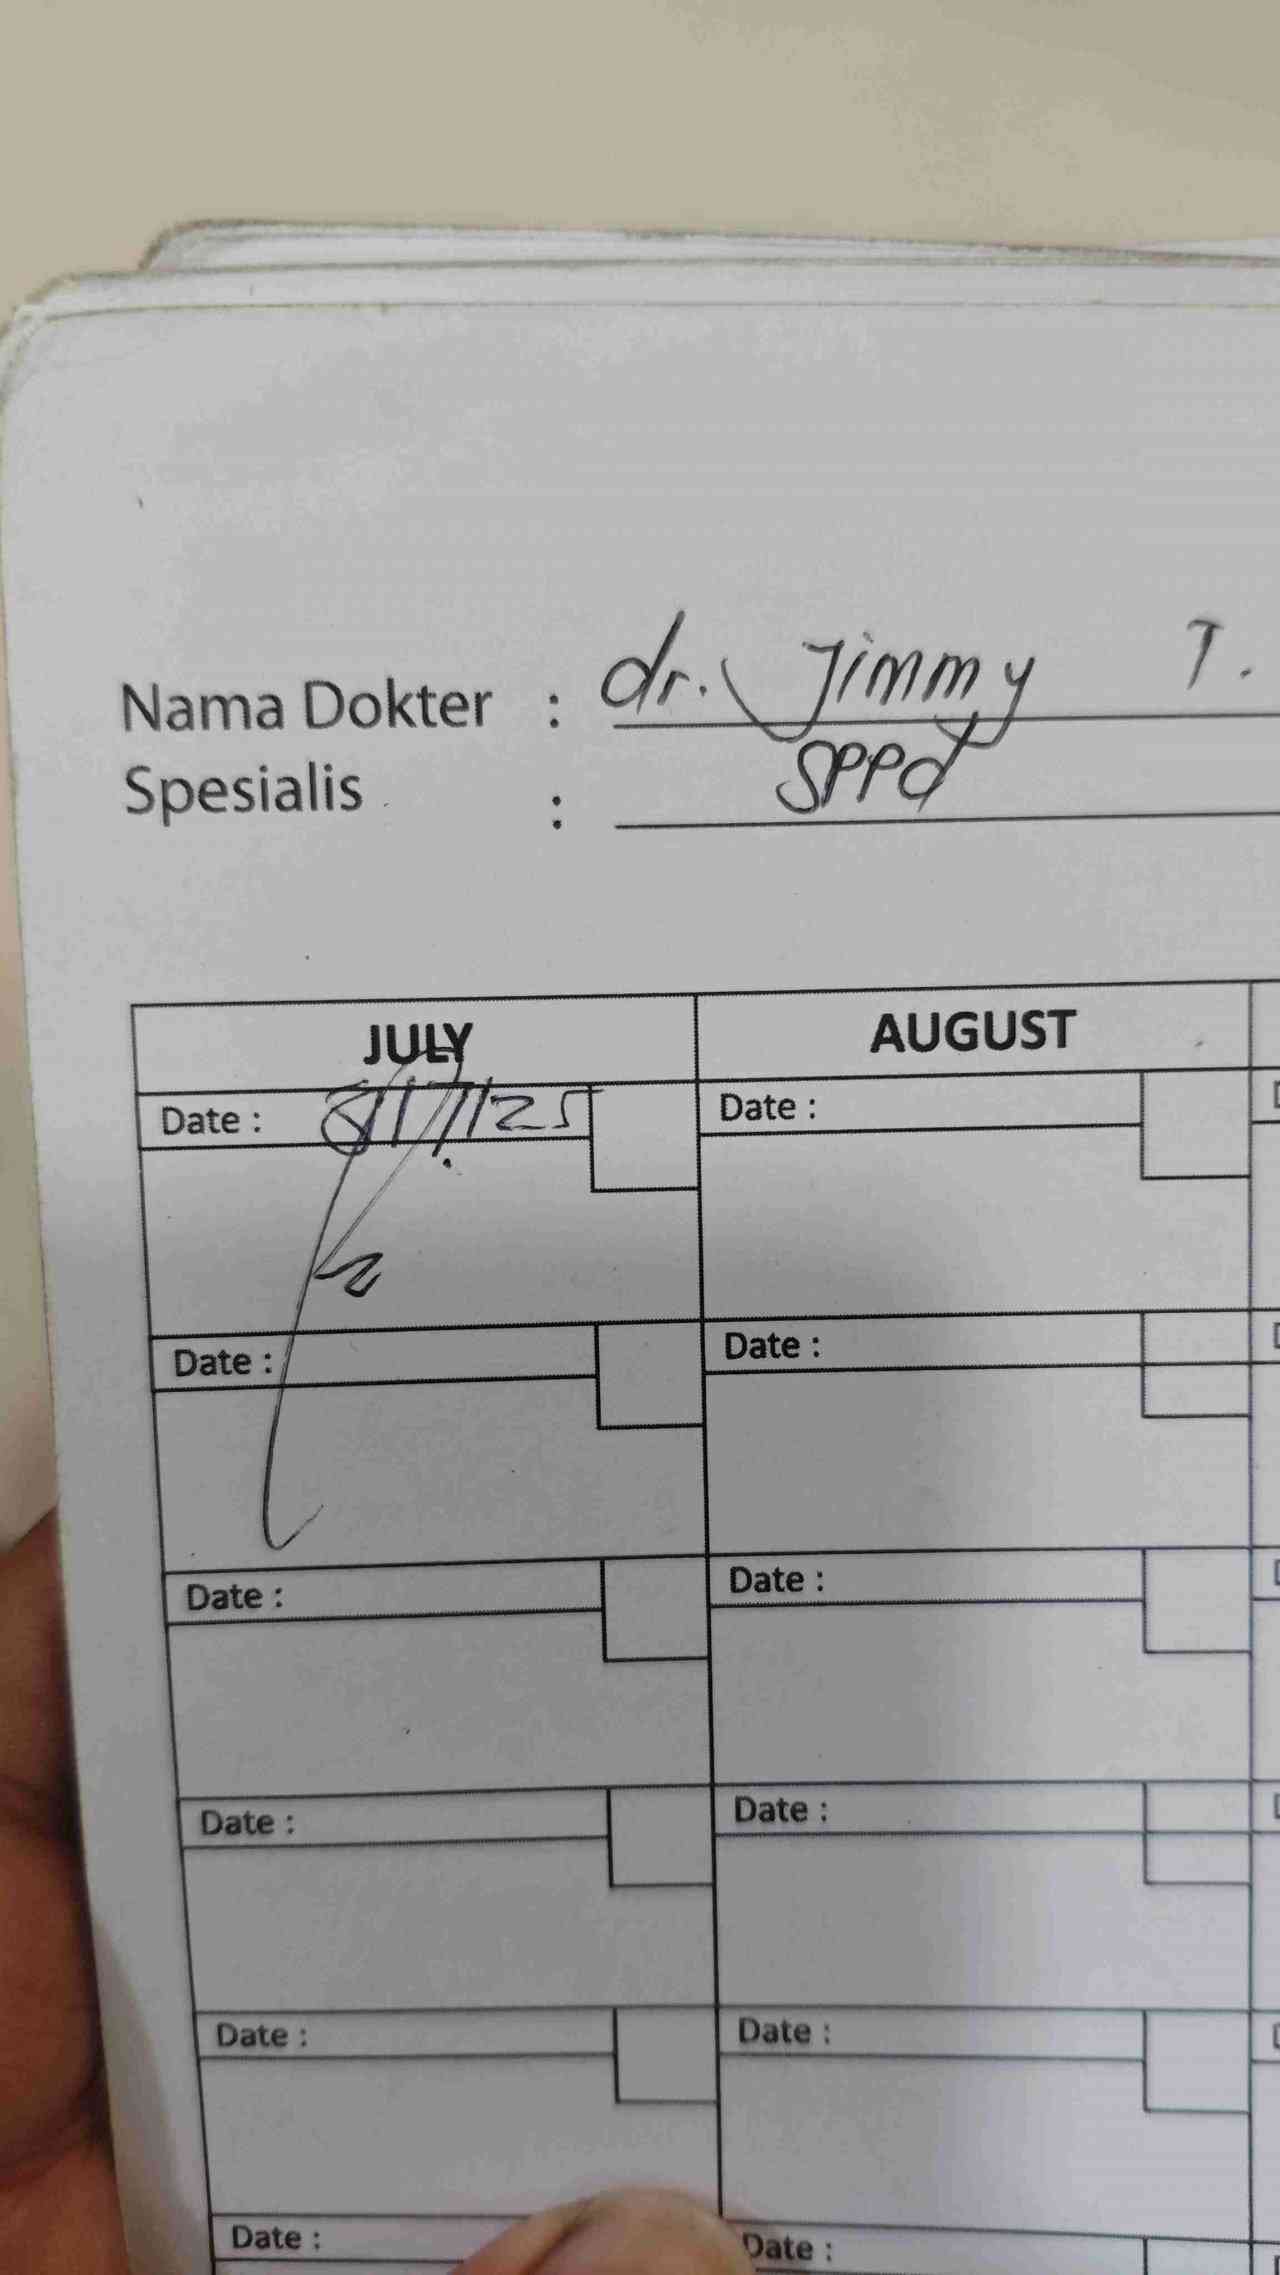 Nama Dokter : dr. Jimmy T.
Spesialis : SPPd
JULY AUGUST
Date : 8/7/25 Date :
Date : Date :
Date : Date :
Date : Date :
Date : Date :
Date : Date :